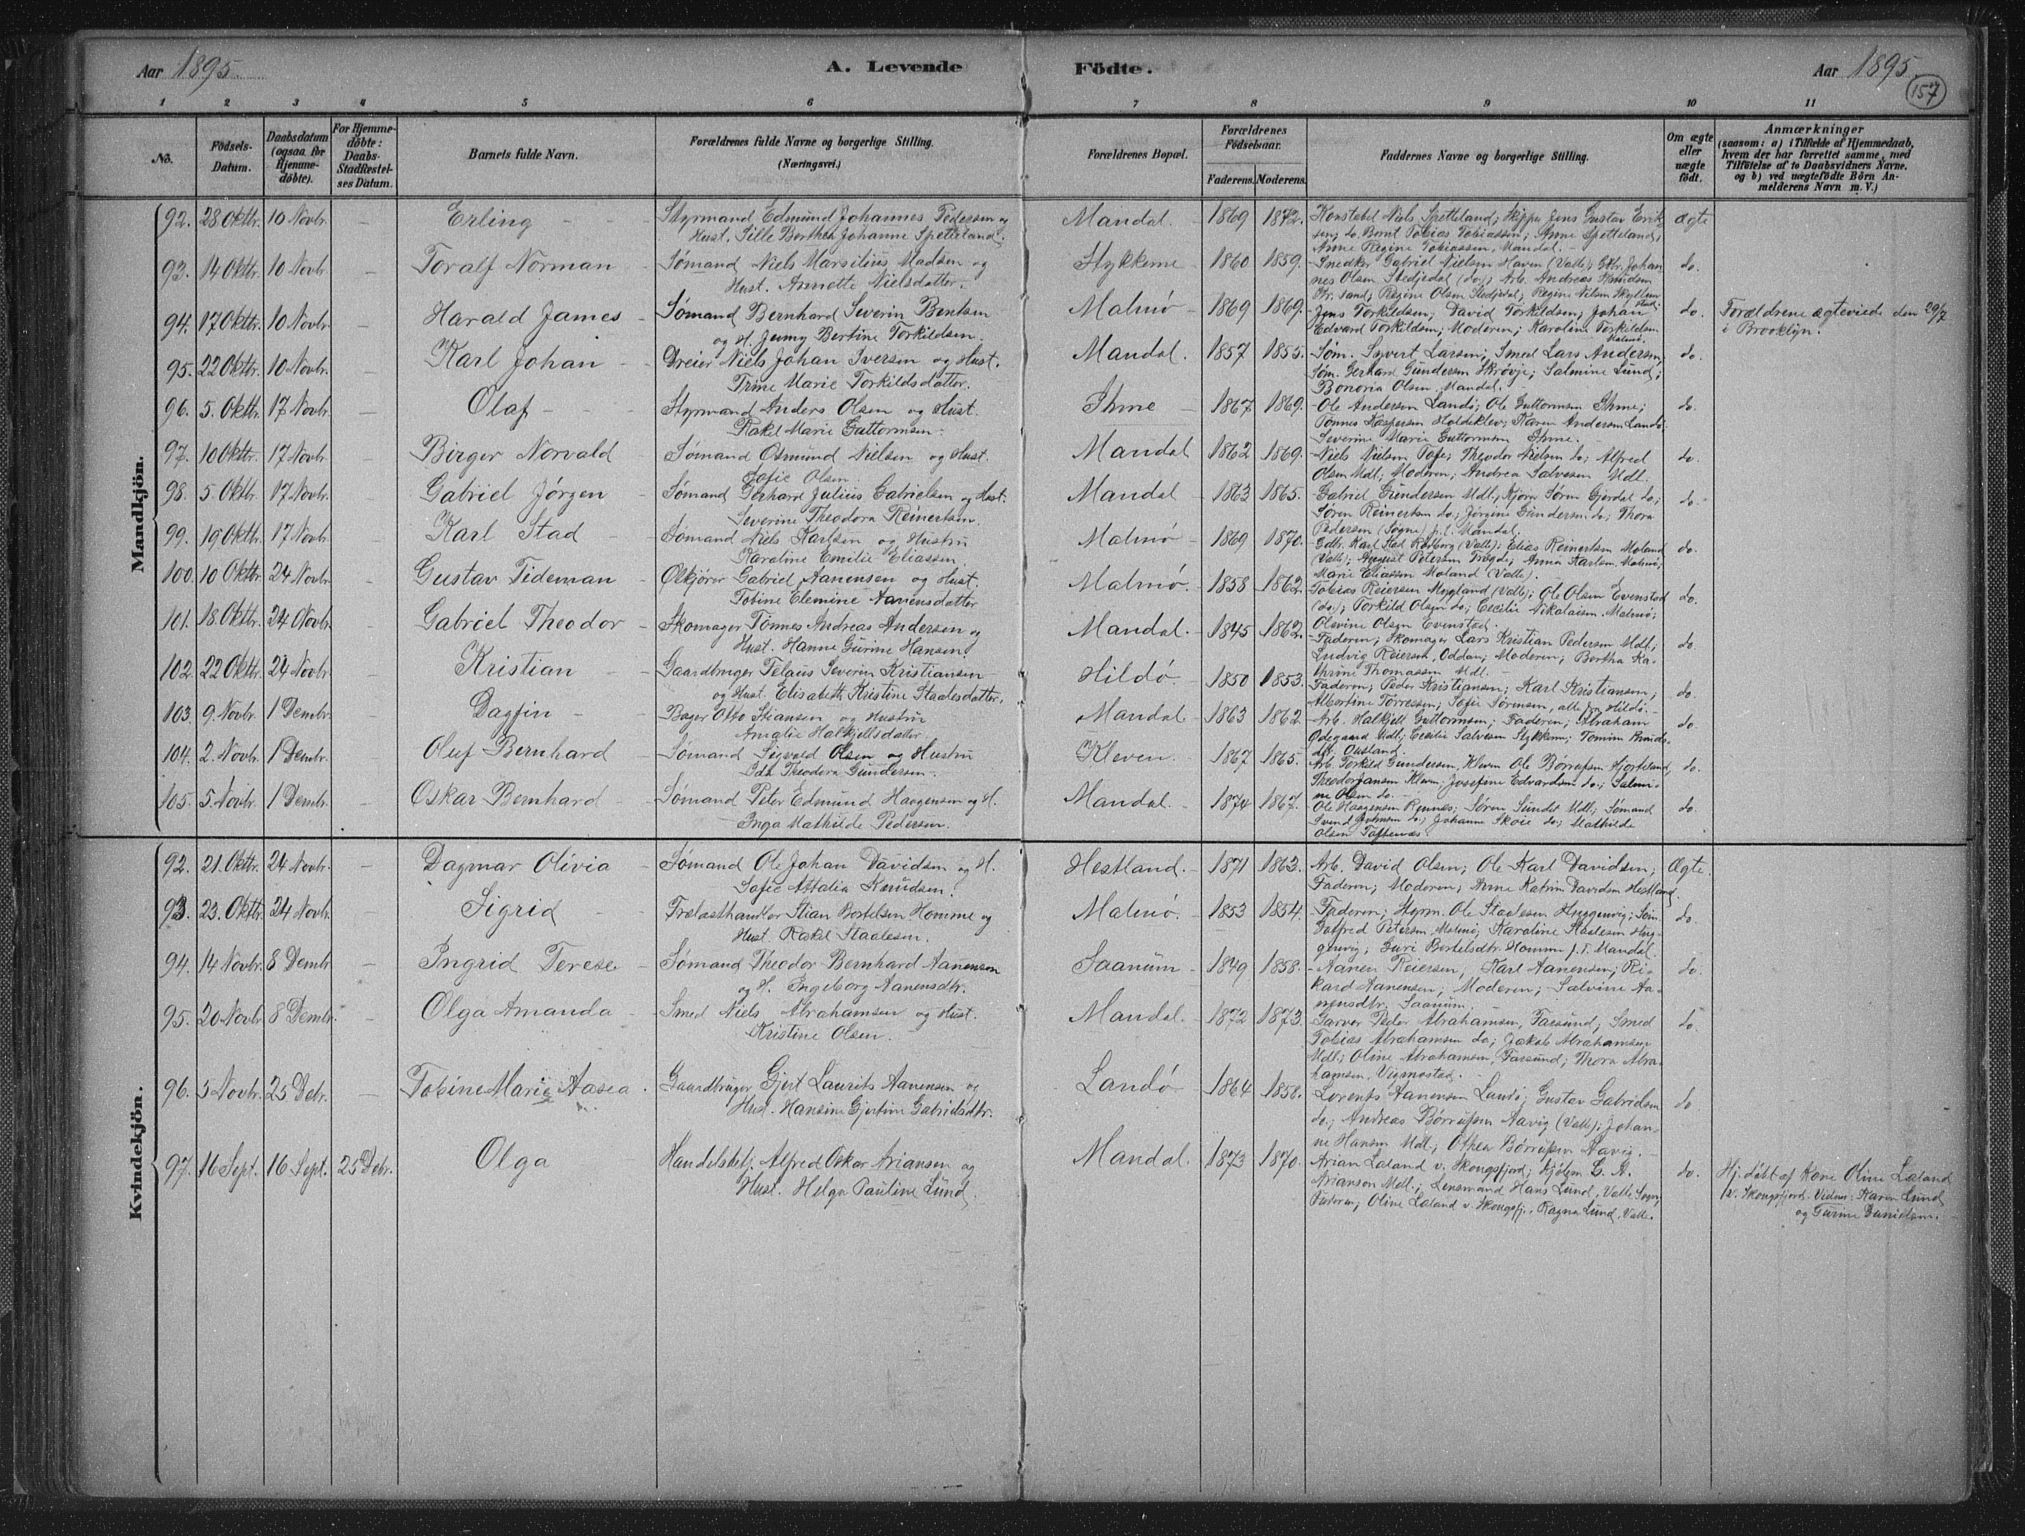 Aar 1895. A. Levende Födte. Aar 1895.
157
1 2 3 4 5 6 7 8 9 10 11
No. Födsels-Datum. Daabsdatum (ogsaa for Hjemmedöbte). For Hjemmedöbte: Daabs-Stadfæstelses Datum. Barnets fulde Navn. Forældrenes fulde Navne og borgerlige Stilling. (Næringsvei.) Forældrenes Bopæl. Forældrenes Födselsaar. Faderens. Moderens. Faddernes Navne og borgerlige Stilling. Om ægte eller uægte födt. Anmærkninger (saasom: a) i Tilfælde af Hjemmedaab, hvem der har forrettet samme, med Tilföielse af to Daabsvidners Navne, og b) ved uægtefödte Börn Anmelderens Navn m. V.)
Mandkjön.
92. 28 Oktbr. 10 Novbr. — Erling - - Styrmand Edmund Johannes Pedersen og Mandal. - 1869 1872. Konstabel Niels Spetteland; Skipper Jens Gustav Erik- ægte
Hust. Sille Berthea Johanne Spetteland. sen; do. Bernt Tobias Tobiassen; Anne Spetteland;
Anne Regine Tobiassen, Mandal. -
93. 14 Oktbr. 10 Novbr. — Toralf Norman - Sømand Niels Marsilius Madsen og Stykkerne - 1860 1859. Snedker Gabriel Nielsen Haven (Valle); Gbr. Johan- do.
Hust. Annette Nielsdatter. nes Olsen Stedjedal (do); Arb. Andreas Knudsen
Chr.sand; Regine Olsen Stedjedal; Regine Nilsen
94. 17 Oktbr. 10 Novbr. — Harald James - Sømand Bernhard Severin Bentsen Malmø - 1869 1869. Jens Torkildsen; David Torkildsen; Johan do. Forældrene ægteviede den 29/7
og H. Jenny Bertine Torkildsen. Edvard Torkildsen; Moderen; Karoline Torkildsen Malmö. i Brooklyn.
95. 22 Oktbr. 10 Novbr. — Karl Johan - Dreier Niels Johan Iversen og Hust. Mandal. 1857 1855. Søm. Syvert Larsen; Smed Lars Andersen; do.
Trine Marie Torkildsdatter. Søm. Gerhard Gundersen Skrøvje; Salmine Lund;
Bonoria Olsen, Mandal. -
96. 5. Oktbr. 17 Novbr. — Olaf - - Styrmand Anders Olsen og Hust. Ihme - 1867 1869. Ole Andersen Landø; Ole Guttormsen Ihme; do.
Rakel Marie Guttormsen. Tönnes Kaspersen Holdeklev; Karen Andersen Landö.
Severine Marie Guttormsen Ihme.
97. 10 Oktbr. 17 Novbr. — Birger Norvald Sømand Osmund Nielsen og Hust. Mandal 1862 1869. Niels Nielsen Tofte; Theodor Nielsen do; Alfred do.
Sofie Olsen. Olsen Mdl; Moderen; Andrea Salvesen Mdl.
98. 5 Oktbr. 17 Novbr. — Gabriel Jørgen - Sømand Gerhard Julius Gabrielsen og Hust. Mandal - 1863 1865. Gabriel Gundersen Mdl; Björn Sören Gjerdal do; do.
Severine Theodora Reinertsen. Sören Reinertsen do; Jörgine Gundersen do; Thora
Pedersen (Søgne) p.t. Mandal.
99. 19 Oktbr. 17 Novbr. — Karl Stad - Sømand Niels Karlsen og Hustru Malmø - 1869 1870. Gdbr. Karl Stad Rødberg (Valle); Elias Reinertsen Moland do.
Karoline Emilie Eliassen. (Valle); August Petersen Tregde; Anna Karlsen Malmö;
Marie Eliassen Moland (Valle).
100. 10 Oktbr. 24 Novbr. — Gustav Tideman - Ølkjører Gabriel Aanensen og Hust. Malmø. 1858 1862. Tobias Reiersen Mygland (Valle); Ole Olsen Evenstad do.
Tobine Elemine Aanensdatter (do); Torkild Olsen do; Cecilie Nikolaisen Malmö;
Olevine Olsen Evenstad.
101. 18 Oktbr. 24 Novbr. — Gabriel Theodor - Skomager Tönnes Andreas Andersen og Mandal. 1845 1862. Faderen; Skomager Lars Kristian Pedersen Mdl; do.
Hust. Hanne Gurine Hansen. Ludvig Reiersen, Oddan; Moderen; Bertha Ka-
thrine Thomassen Mdl. -
102. 22 Oktbr. 24 Novbr. — Kristian - Gaardbruger Telaus Severin Kristiansen Hildø - 1850 1853. Faderen; Peder Kristiansen; Karl Kristiansen; do.
og Hust. Elisabeth Kristine Staalesdatter. Albertine Torressen; Sofie Sørensen, alle fra Hildö. -
103. 9. Novbr. 1 Dembr. — Dagfin - Bager Otto Stiansen og Hustru Mandal 1863 1862 Arb. Halkjell Guttormsen; Faderen; Abraham do.
Amalie Halkjelsdatter. Ödegaard Mdl; Cecilie Salvesen Stykkerne; Tomine
Ousland.
104. 2. Novbr. 1 Dembr. — Oluf Bernhard Sømand Sigvald Olsen og Hustru Kleven. 1867 1865. Arb. Torkild Gundersen, Kleven Ole Börrufsen Hjorteland; do.
Ida Theodora Gundersen. - Theodor Jansen Kleven; Josefine Edvardsen do; Salmi-
ne Olsen do. -
105. 5. Novbr. 1 Dembr. — Oskar Bernhard Sømand Peter Edmund Haagensen og H. Mandal. - 1874 1867. Ole Haagensen Rønnes; Søren Sundet Mdl; Sømand do.
Inga Mathilde Pedersen. Svend Johnsen do; Johanne Skoie do; Mathilde
Olsen Toftenæs.
Kvindekjön.
92. 21. Oktbr. 24 Novbr. — Dagmar Olivia - Sømand Ole Johan Davidsen og H. Hestland. - 1871 1863. Arb. David Olsen; Ole Karl Davidsen; Ægte.
Sofie Attalia Knudsen. Faderen; Moderen; Anne Katrine Davidsen Hestland.
93. 23. Oktbr. 24 Novbr. — Sigrid - Trælasthandler Stian Bertelsen Homme og Malmø. - 1853 1854. Faderen; Styrm. Ole Staalesen Huggenvig; Søm. do.
Hust. Rakel Staalesen. Gotfred Petersen, Malmö; Karoline Staalesen Hug-
genvig; Guri Bertelsdtr. Homme p.t. Mandal.
94. 14 Novbr. 8 Dembr. — Ingrid Terese - Sømand Theodor Bernhard Aanensen Saanum - 1849 1858. Aanen Reiersen, Karl Aanensen; Ri- do.
og H. Engeborg Aanensdtr. kard Aanensen; Moderen; Salvine Aa-
nensdtr. Saanum. -
95. 20 Novbr. 8 Dembr. — Olga Amanda - Smed Niels Abrahamsen og Hust. Mandal. 1872 1873. Garver Peder Abrahamsen, Farsund; Smed do.
Kristine Olsen. Tobias Abrahamsen do; Jakob Abrahamsen
Mdl; Oline Abrahamsen Farsund; Thora Abra-
hamsen, Vigmostad.
96. 3 Novbr. 25 Debr. — Tobine Marie Aasea. Gaardbruger Gjert Laurits Aanensen og Landø 1864 1858. Lorents Aanensen Landø; Gustav Gabrielsen do
Hust. Hansine Gjertine Gabrielsdtr. do; Andreas Börrufsen Aavig (Valle); Johan-
ne Hansen Mdl; Othea Börrufsen Aavig. -
97. 16 Sept. 16 Sept. 25 Debr. Olga - Handelsbetj. Alfred Oskar Ariansen og Mandal. 1873 1870. Arian Laland v. Skongsfjord; Kjølem. L. A. do. Hj. döbt af Kone Oline Laland
Hust. Helga Pauline Lund. Arianson Mdl.; Lensmand Hans Lund, Valle Sogn; v. Skongsfjord. Vidner: Karen Lund
Faderen; Oline Laland v. Skongsfj.; Ragna Lund, Valle. og Gurine Danielsen.